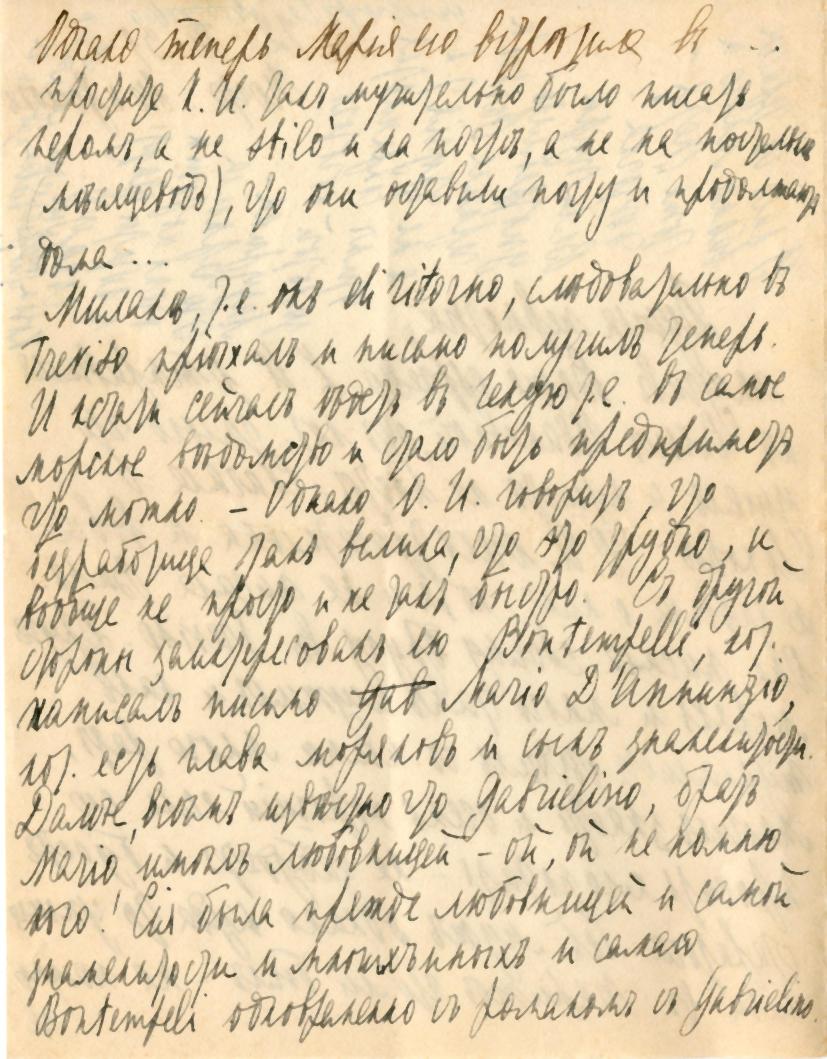 Однако теперь Марія его встрѣтила въ ...
простите О. И. такъ мучительно было писать
перомъ, а не stilo и на почтѣ, а не на постели
(мѣсяцеводъ), что они оставили почту и продолжаютъ
дома ...
Миланѣ, т. е. онъ di ritorno, слѣдовательно въ
Treviso пріѣхалъ и письмо получилъ теперь.
И кстати сейчасъ ѣдетъ въ Геную т. е. въ самое
морское вѣдомство и стало быть предприметъ
что можно. – Однако О. И. говоритъ, что
безработица такъ велика, что это трудно, и
вообще не просто и не такъ быстро. Съ другой
стороны заинтересованъ ею Bontempelli, кот.
написалъ письмо Gab Mario D'Annunzio,
кот. есть глава моряковъ и сынъ знаменитости.
Далѣе, всѣмъ извѣстно что Gabrielino, братъ
Mario имѣлъ любовницей – ой, ой не помню
кого! Сія была прежде любовницей и самой
знаменитости и многихъ иныхъ и самаго
Bontempeli одновременно съ романомъ съ Gabrielino.